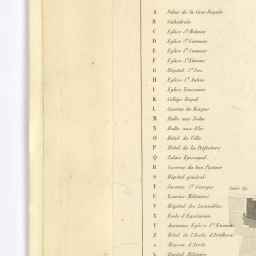 A Palais de la Cour Royale
B Cathédrale
C Eglise St
D Eglise St Germain
E Eglise St
F Eglise St Etienne
G Hôpital St
H Eglise St Aubin
I Eglise Toussaint
K Collège Royal
L Caserne de
M Halle aux Toiles
N Halle aux Blés
O Hôtel de Ville
P Hôtel de la Préfecture
Q Palais Episcopal
R Caserne du bon Pasteur
S Hôpital général
T Caserne St Georges
U Lavoirs Militaires
V Hôpital des Incurables
X Ecole d'Equitation
Y Ancienne Eglise St Etienne
Z Hôtel de l'Ecole d'Artillerie
a
b Hôpital Militaire